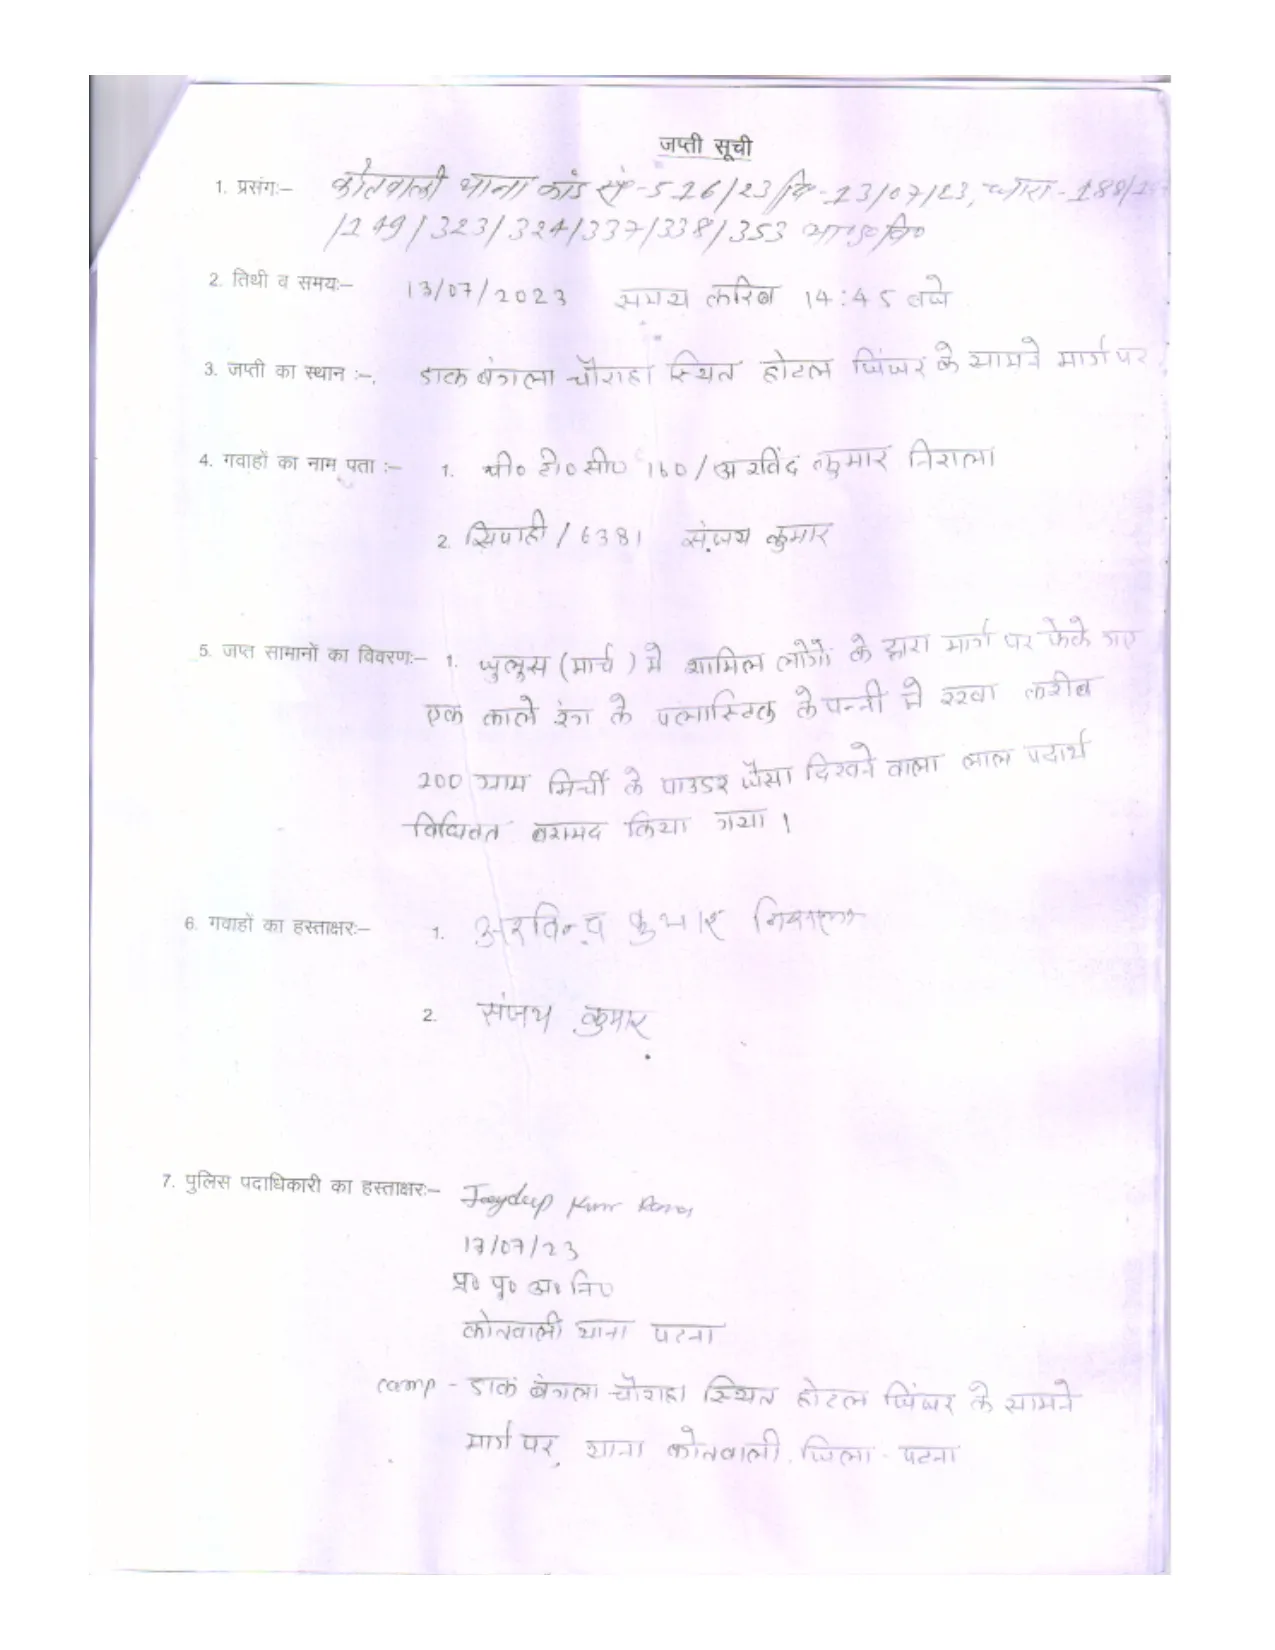 जप्ती सूची
1. प्रसंगः– कोतवाली थाना कांड सं०-526/23 दि०-13/07/23, धारा-188/147
/149/323/324/337/338/353 भा०द०वि०
2. तिथी व समयः– 13/07/2023 समय करिब 14:45 बजे
3. जप्ती का स्थान :–. डाक बंगला चौराहा स्थित होटल जिंजर के सामने मार्ग पर
4. गवाहों का नाम पता :– 1. पी० टी० सी० 160/अरविंद कुमार निराला
2. सिपाही / 6381 संजय कुमार
5. जप्त सामानों का विवरणः– 1. जुलुस (मार्च) मे शामिल लोगों के द्वारा मार्ग पर फेके गए
एक काले रंग के प्लास्टिक के पन्नी मे रखा करीब
200 ग्राम मिर्ची के पाउडर जैसा दिखने वाला लाल पदार्थ
विधिवत बरामद किया गया।
6. गवाहों का हस्ताक्षरः– 1. अरविन्द कुमार निराला
2. संजय कुमार
7. पुलिस पदाधिकारी का हस्ताक्षरः– Jaydeep Kumar
13/07/23
प्र० पु० अ० नि०
कोतवाली थाना पटना
camp - डाक बंगला चौराहा स्थित होटल जिंजर के सामने
मार्ग पर, थाना कोतवाली. जिला - पटना